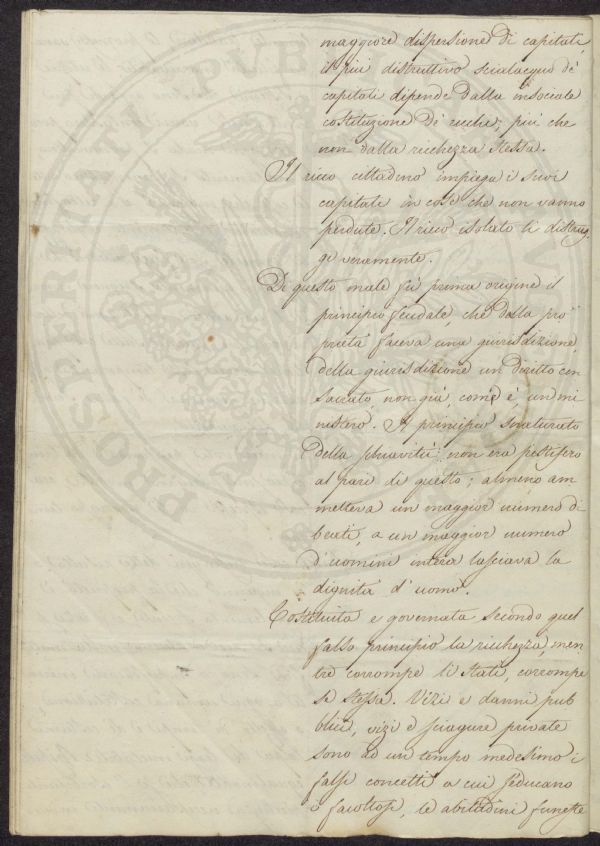 maggiore dispersione di capitali,
il più distruttivo scialacquo de'
capitali dipende dalla insociale
costituzione de' ricchi, più che
non dalla ricchezza stessa.
Il ricco cittadino impiega i suoi
capitali in cose che non vanno
perdute. Il ricco isolato li distrug
ge veramente.
Di questo male fù prima origine il
principio feudale, che dalla pro
prietà faceva una giurisdizione,
della giurisdizione un diritto con
sacrato, non già, com'è, un mi
nistero. Il principio snaturato
della schiavitù non era pestifero
al pari di questo; almeno am
metteva un maggior numero di
beati, a un maggior numero
d'uomini intera lasciava la
dignità d'uomo.
Costituita e governata secondo quel
falso principio la ricchezza, men
tre corrompe li Stati, corrompe
se stessa. Vizi e danni pub
blici, vizi e sciagure private
sono ad un tempo medesimo i
falsi concetti a cui s'educano
i facoltosi, le abitudini funeste
PROSPERITATI PVB